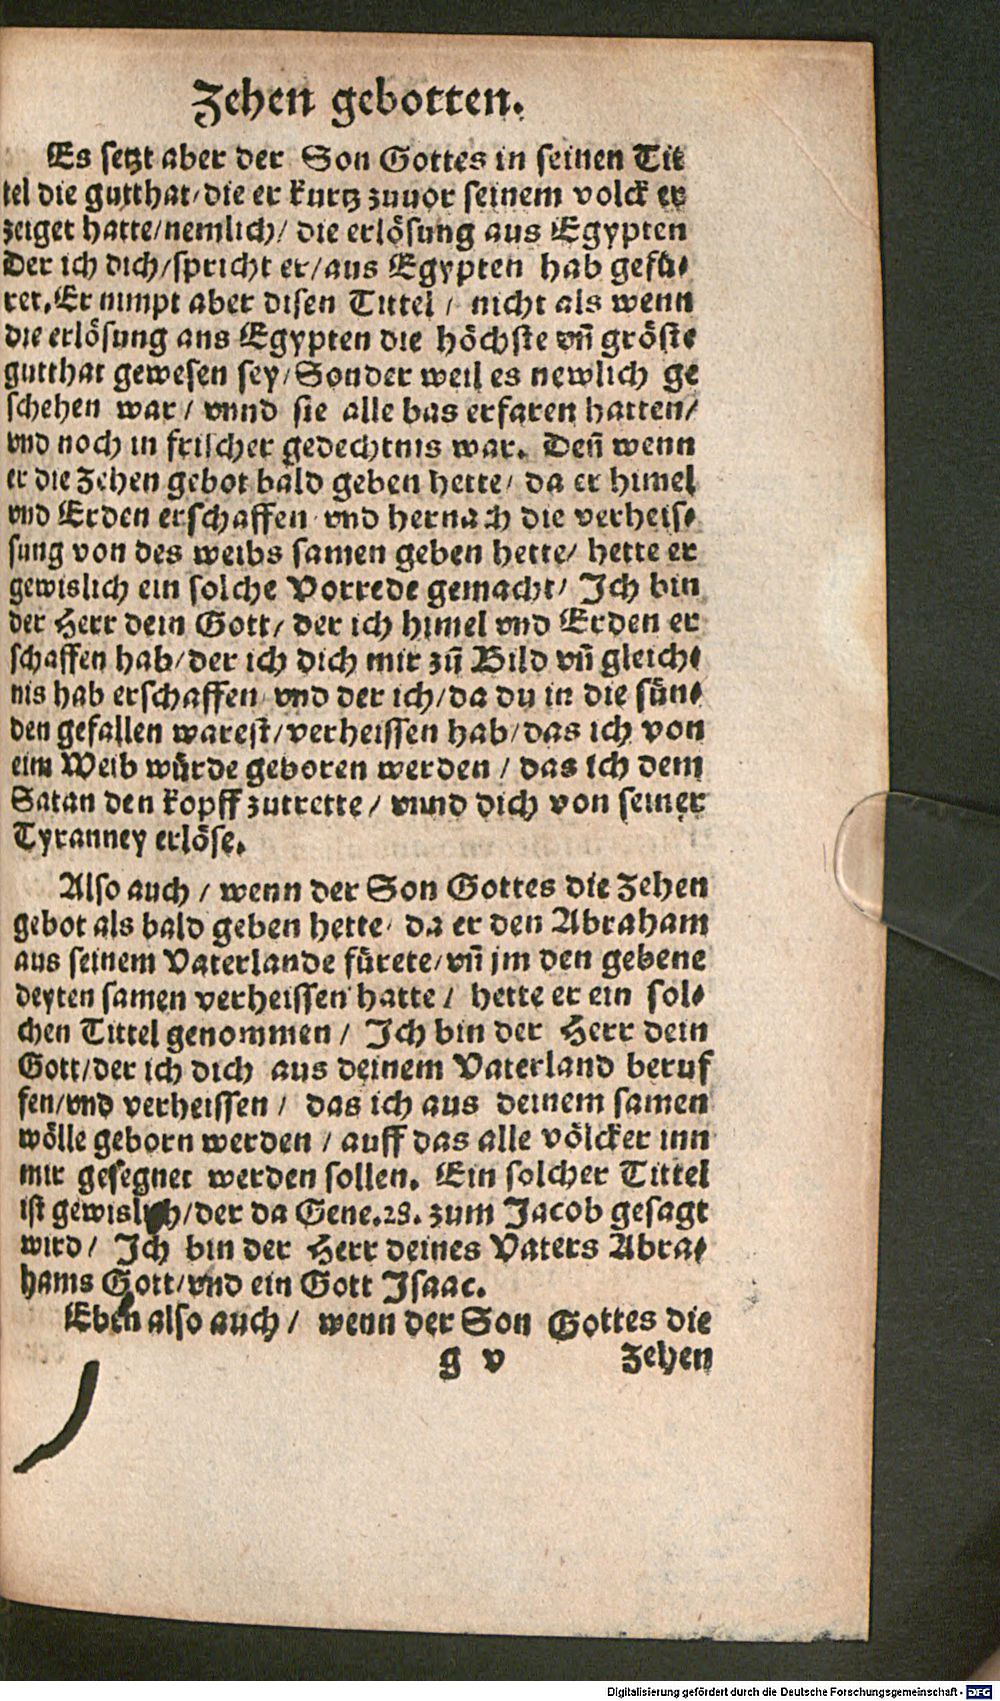 Zehen gebotten.
Es setzt aber der Son Gottes in seinen Tit
tel die gutthat/die er kurtz zuuor seinem volck er
zeiget hatte/nemlich/ die erlösung aus Egypten
Der ich dich/spricht er/aus Egypten hab gefü⸗
ret. Er nimpt aber disen Tittel / nicht als wenn
die erlösung aus Egypten die höchste vñ gröste
gutthat gewesen sey/Sonder weil es newlich ge
schehen war / vnnd sie alle bas erfaren hatten/
vnd noch in frischer gedechtnis war. Deñ wenn
er die Zehen gebot bald geben hette/ da er himel
vnd Erden erschaffen vnd hernach die verheis⸗
sung von des weibs samen geben hette/ hette er
gewislich ein solche Vorrede gemacht/ Ich bin
der Herr dein Gott/ der ich himel vnd Erden er
schaffen hab/der ich dich mir zů Bild vñ gleich⸗
nis hab erschaffen/ vnd der ich/da du in die sün⸗
den gefallen warest/verheissen hab/das ich von
eim Weib würde geboren werden / das ich dem
Satan den kopff zutrette / vnnd dich von seiner
Tyranney erlöse.
Also auch / wenn der Son Gottes die Zehen
gebot als bald geben hette/ da er den Abraham
aus seinem Vaterlande fürete/vñ jm den gebene
deyten samen verheissen hatte / hette er ein sol⸗
chen Tittel genommen / Ich bin der Herr dein
Gott/der ich dich aus deinem Vaterland beruf
fen/vnd verheissen / das ich aus deinem samen
wölle geborn werden / auff das alle völcker inn
mir gesegnet werden sollen. Ein solcher Tittel
ist gewislich/der da Gene.28. zum Jacob gesagt
wird / Ich bin der Herr deines Vaters Abra⸗
hams Gott/vnd ein Gott Isaac.
Eben also auch / wenn der Son Gottes die
g v Zehen
Digitalisierung gefördert durch die Deutsche Forschungsgemeinschaft - DFG